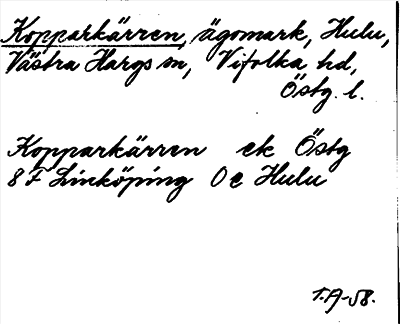 Kopparkärren, ägomark, Hulu,
Västra Hargs sn, Vifolka hd,
Östg. l.
Kopparkärren ek Östg
8 F Linköping 0 e Hulu
T.A-58.